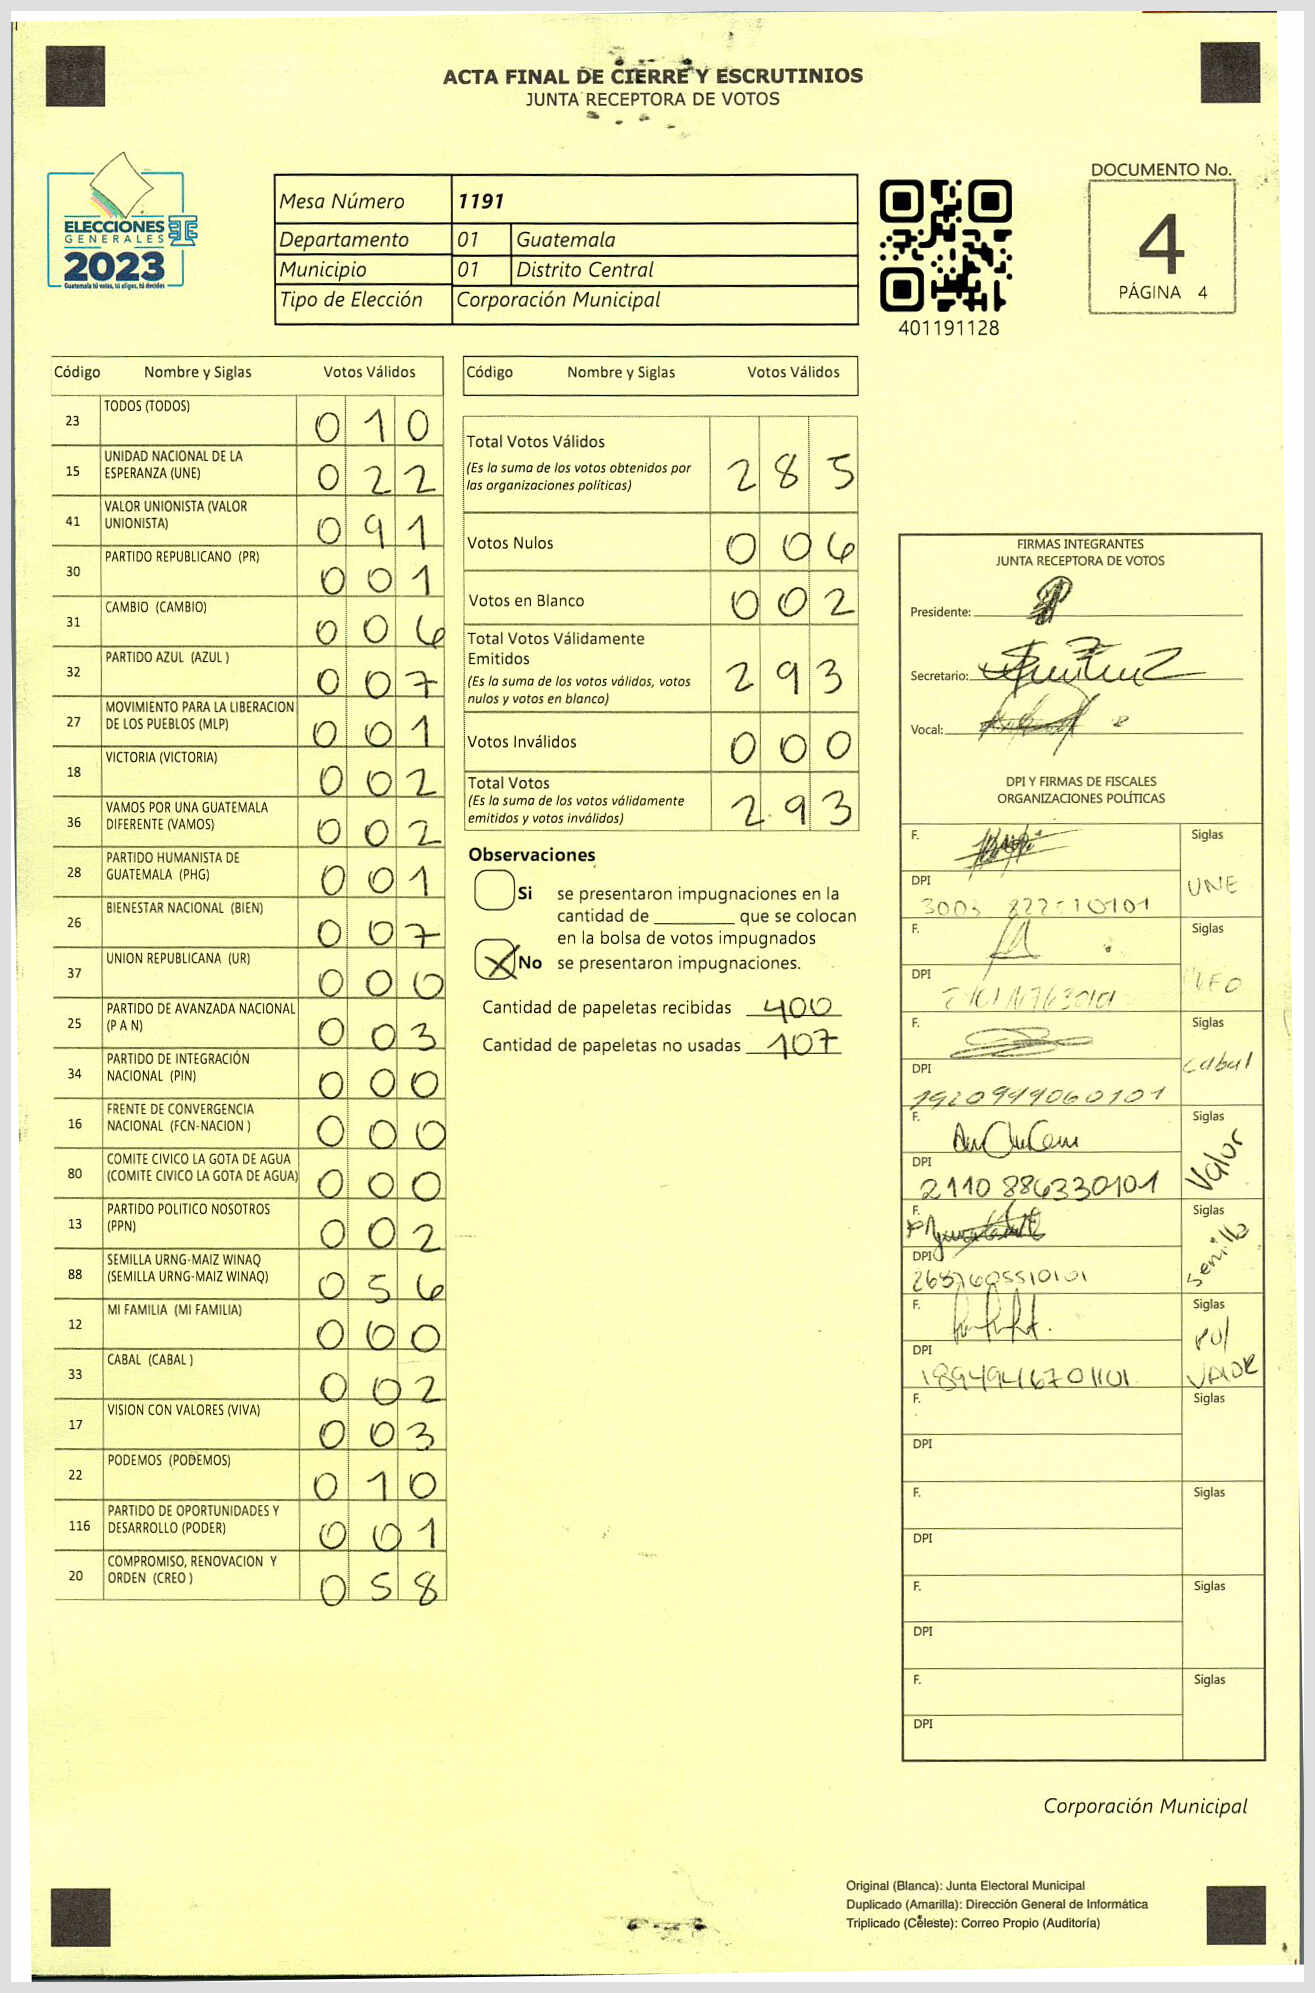 ACTA FINAL DE CIERRE Y ESCRUTINIOS
JUNTA RECEPTORA DE VOTOS
ELECCIONES
GENERALES
2023
Guatemala tú votas, tú eliges, tú decides
Mesa Número 1191
Departamento 01 Guatemala
Municipio 01 Distrito Central
Tipo de Elección Corporación Municipal
401191128
DOCUMENTO No.
4
PÁGINA 4
Código Nombre y Siglas Votos Válidos
23 TODOS (TODOS) 0 1 0
15 UNIDAD NACIONAL DE LA
ESPERANZA (UNE) 0 2 2
41 VALOR UNIONISTA (VALOR
UNIONISTA) 0 9 1
30 PARTIDO REPUBLICANO (PR) 0 0 1
31 CAMBIO (CAMBIO) 0 0 6
32 PARTIDO AZUL (AZUL ) 0 0 7
27 MOVIMIENTO PARA LA LIBERACION
DE LOS PUEBLOS (MLP) 0 0 1
18 VICTORIA (VICTORIA) 0 0 2
36 VAMOS POR UNA GUATEMALA
DIFERENTE (VAMOS) 0 0 2
28 PARTIDO HUMANISTA DE
GUATEMALA (PHG) 0 0 1
26 BIENESTAR NACIONAL (BIEN) 0 0 7
37 UNION REPUBLICANA (UR) 0 0 0
25 PARTIDO DE AVANZADA NACIONAL
(P A N) 0 0 3
34 PARTIDO DE INTEGRACIÓN
NACIONAL (PIN) 0 0 0
16 FRENTE DE CONVERGENCIA
NACIONAL (FCN-NACION ) 0 0 0
80 COMITE CIVICO LA GOTA DE AGUA
(COMITE CIVICO LA GOTA DE AGUA) 0 0 0
13 PARTIDO POLITICO NOSOTROS
(PPN) 0 0 2
88 SEMILLA URNG-MAIZ WINAQ
(SEMILLA URNG-MAIZ WINAQ) 0 5 6
12 MI FAMILIA (MI FAMILIA) 0 0 0
33 CABAL (CABAL ) 0 0 2
17 VISION CON VALORES (VIVA) 0 0 3
22 PODEMOS (PODEMOS) 0 1 0
116 PARTIDO DE OPORTUNIDADES Y
DESARROLLO (PODER) 0 0 1
20 COMPROMISO, RENOVACION Y
ORDEN (CREO ) 0 5 8
Código Nombre y Siglas Votos Válidos
Total Votos Válidos
(Es la suma de los votos obtenidos por
las organizaciones políticas) 2 8 5
Votos Nulos 0 0 6
Votos en Blanco 0 0 2
Total Votos Válidamente
Emitidos
(Es la suma de los votos válidos, votos
nulos y votos en blanco) 2 9 3
Votos Inválidos 0 0 0
Total Votos
(Es la suma de los votos válidamente
emitidos y votos inválidos) 2 9 3
Observaciones
Si se presentaron impugnaciones en la
cantidad de ________ que se colocan
en la bolsa de votos impugnados
X No se presentaron impugnaciones.
Cantidad de papeletas recibidas 400
Cantidad de papeletas no usadas 107
FIRMAS INTEGRANTES
JUNTA RECEPTORA DE VOTOS
Presidente:
Secretario:
Vocal:
DPI Y FIRMAS DE FISCALES
ORGANIZACIONES POLÍTICAS
F. Siglas
DPI UNE
F. Siglas
DPI
F. Siglas
DPI Cabal
1920999060101
F. Siglas
DPI Valor
2110 886330101
F. Siglas
DPI Semilla
F. Siglas
DPI VALOR
F. Siglas
DPI
F. Siglas
DPI
F. Siglas
DPI
F. Siglas
DPI
Corporación Municipal
Original (Blanca): Junta Electoral Municipal
Duplicado (Amarilla): Dirección General de Informática
Triplicado (Celeste): Correo Propio (Auditoría)